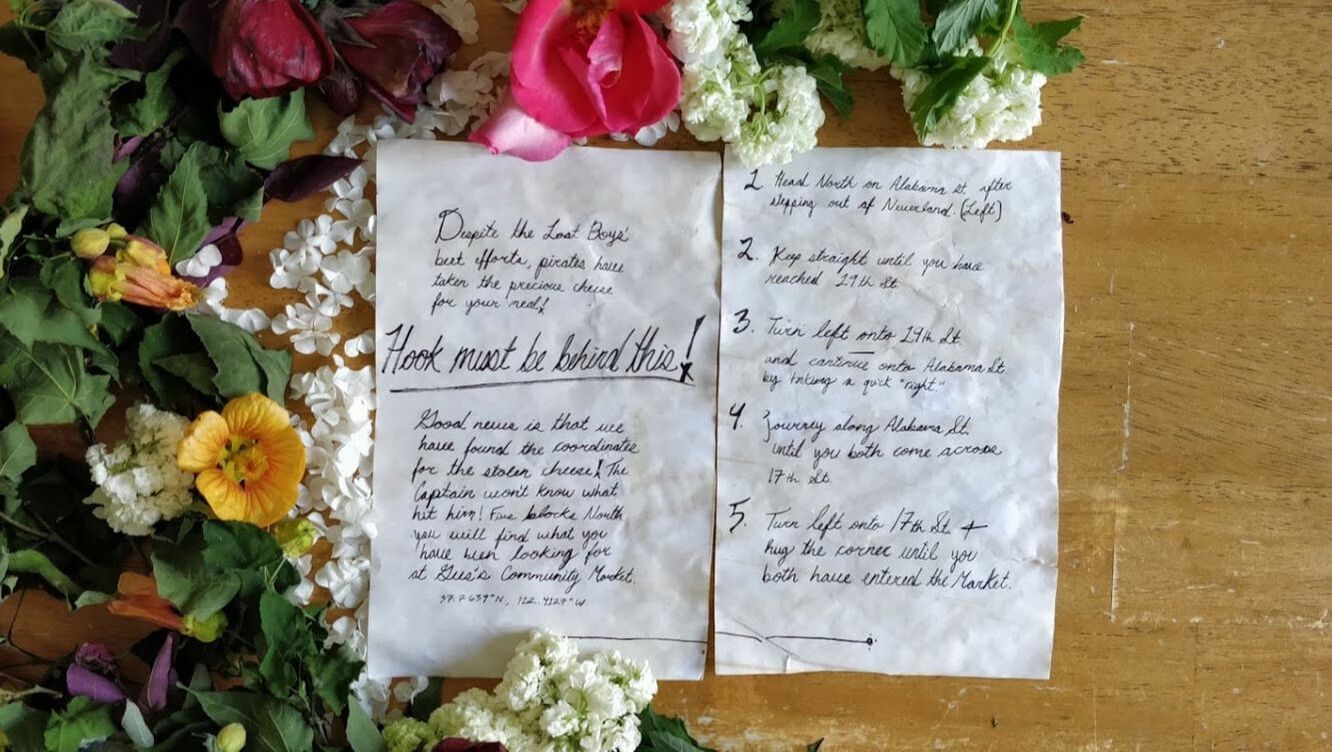 Despite the Lost Boys'
best efforts, pirates have
taken the precious cheese
for your meal!
Hook must be behind this!
Good news is that we
have found the coordinates
for the stolen cheese! The
Captain won't know what
hit him! Five blocks North
you will find what you
have been looking for
at Gus's Community Market.
37.7639°N, 122.4127°W
1. Head North on Alabama St. after
stepping out of Neverland. (Left)
2. Keep straight until you have
reached 19th St.
3. Turn left onto 19th St.
and continue onto Alabama St
by taking a quick "right."
4. Journey along Alabama St.
until you both come across
17th St.
5. Turn left onto 17th St. +
hug the corner until you
both have entered the Market.